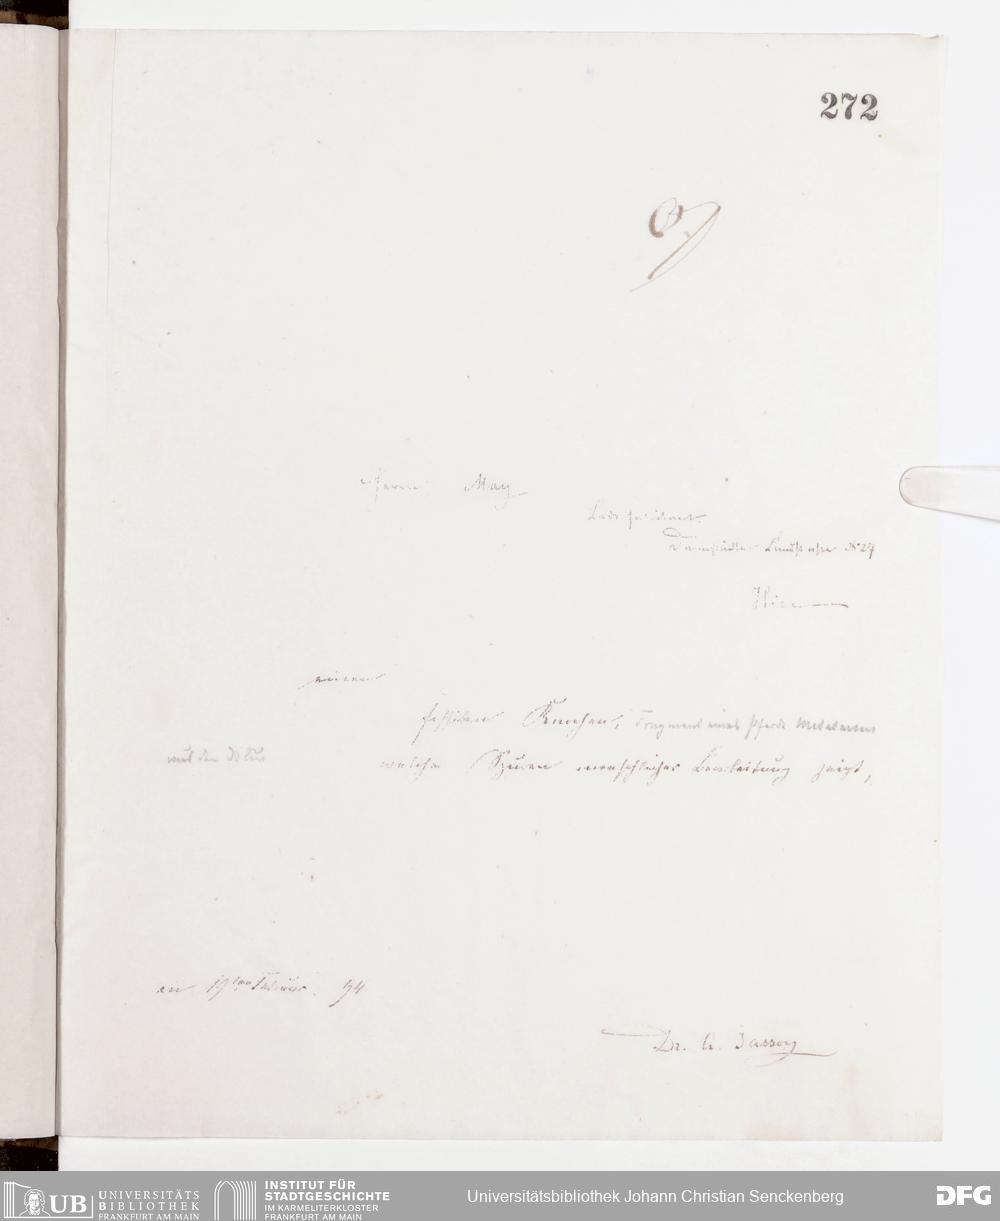 272
Herrn May
Darmstädter Landstrasse No 27
Hier
einen
fossilen Knochen, Fragment eines Pferde Metatarsus
aus dem
welcher Spuren menschlicher Bearbeitung zeigt,
19ten Februar 94
Dr. A. Jassoy
UB UNIVERSITÄTS
BIBLIOTHEK
FRANKFURT AM MAIN
INSTITUT FÜR
STADTGESCHICHTE
IM KARMELITERKLOSTER
FRANKFURT AM MAIN
Universitätsbibliothek Johann Christian Senckenberg
DFG